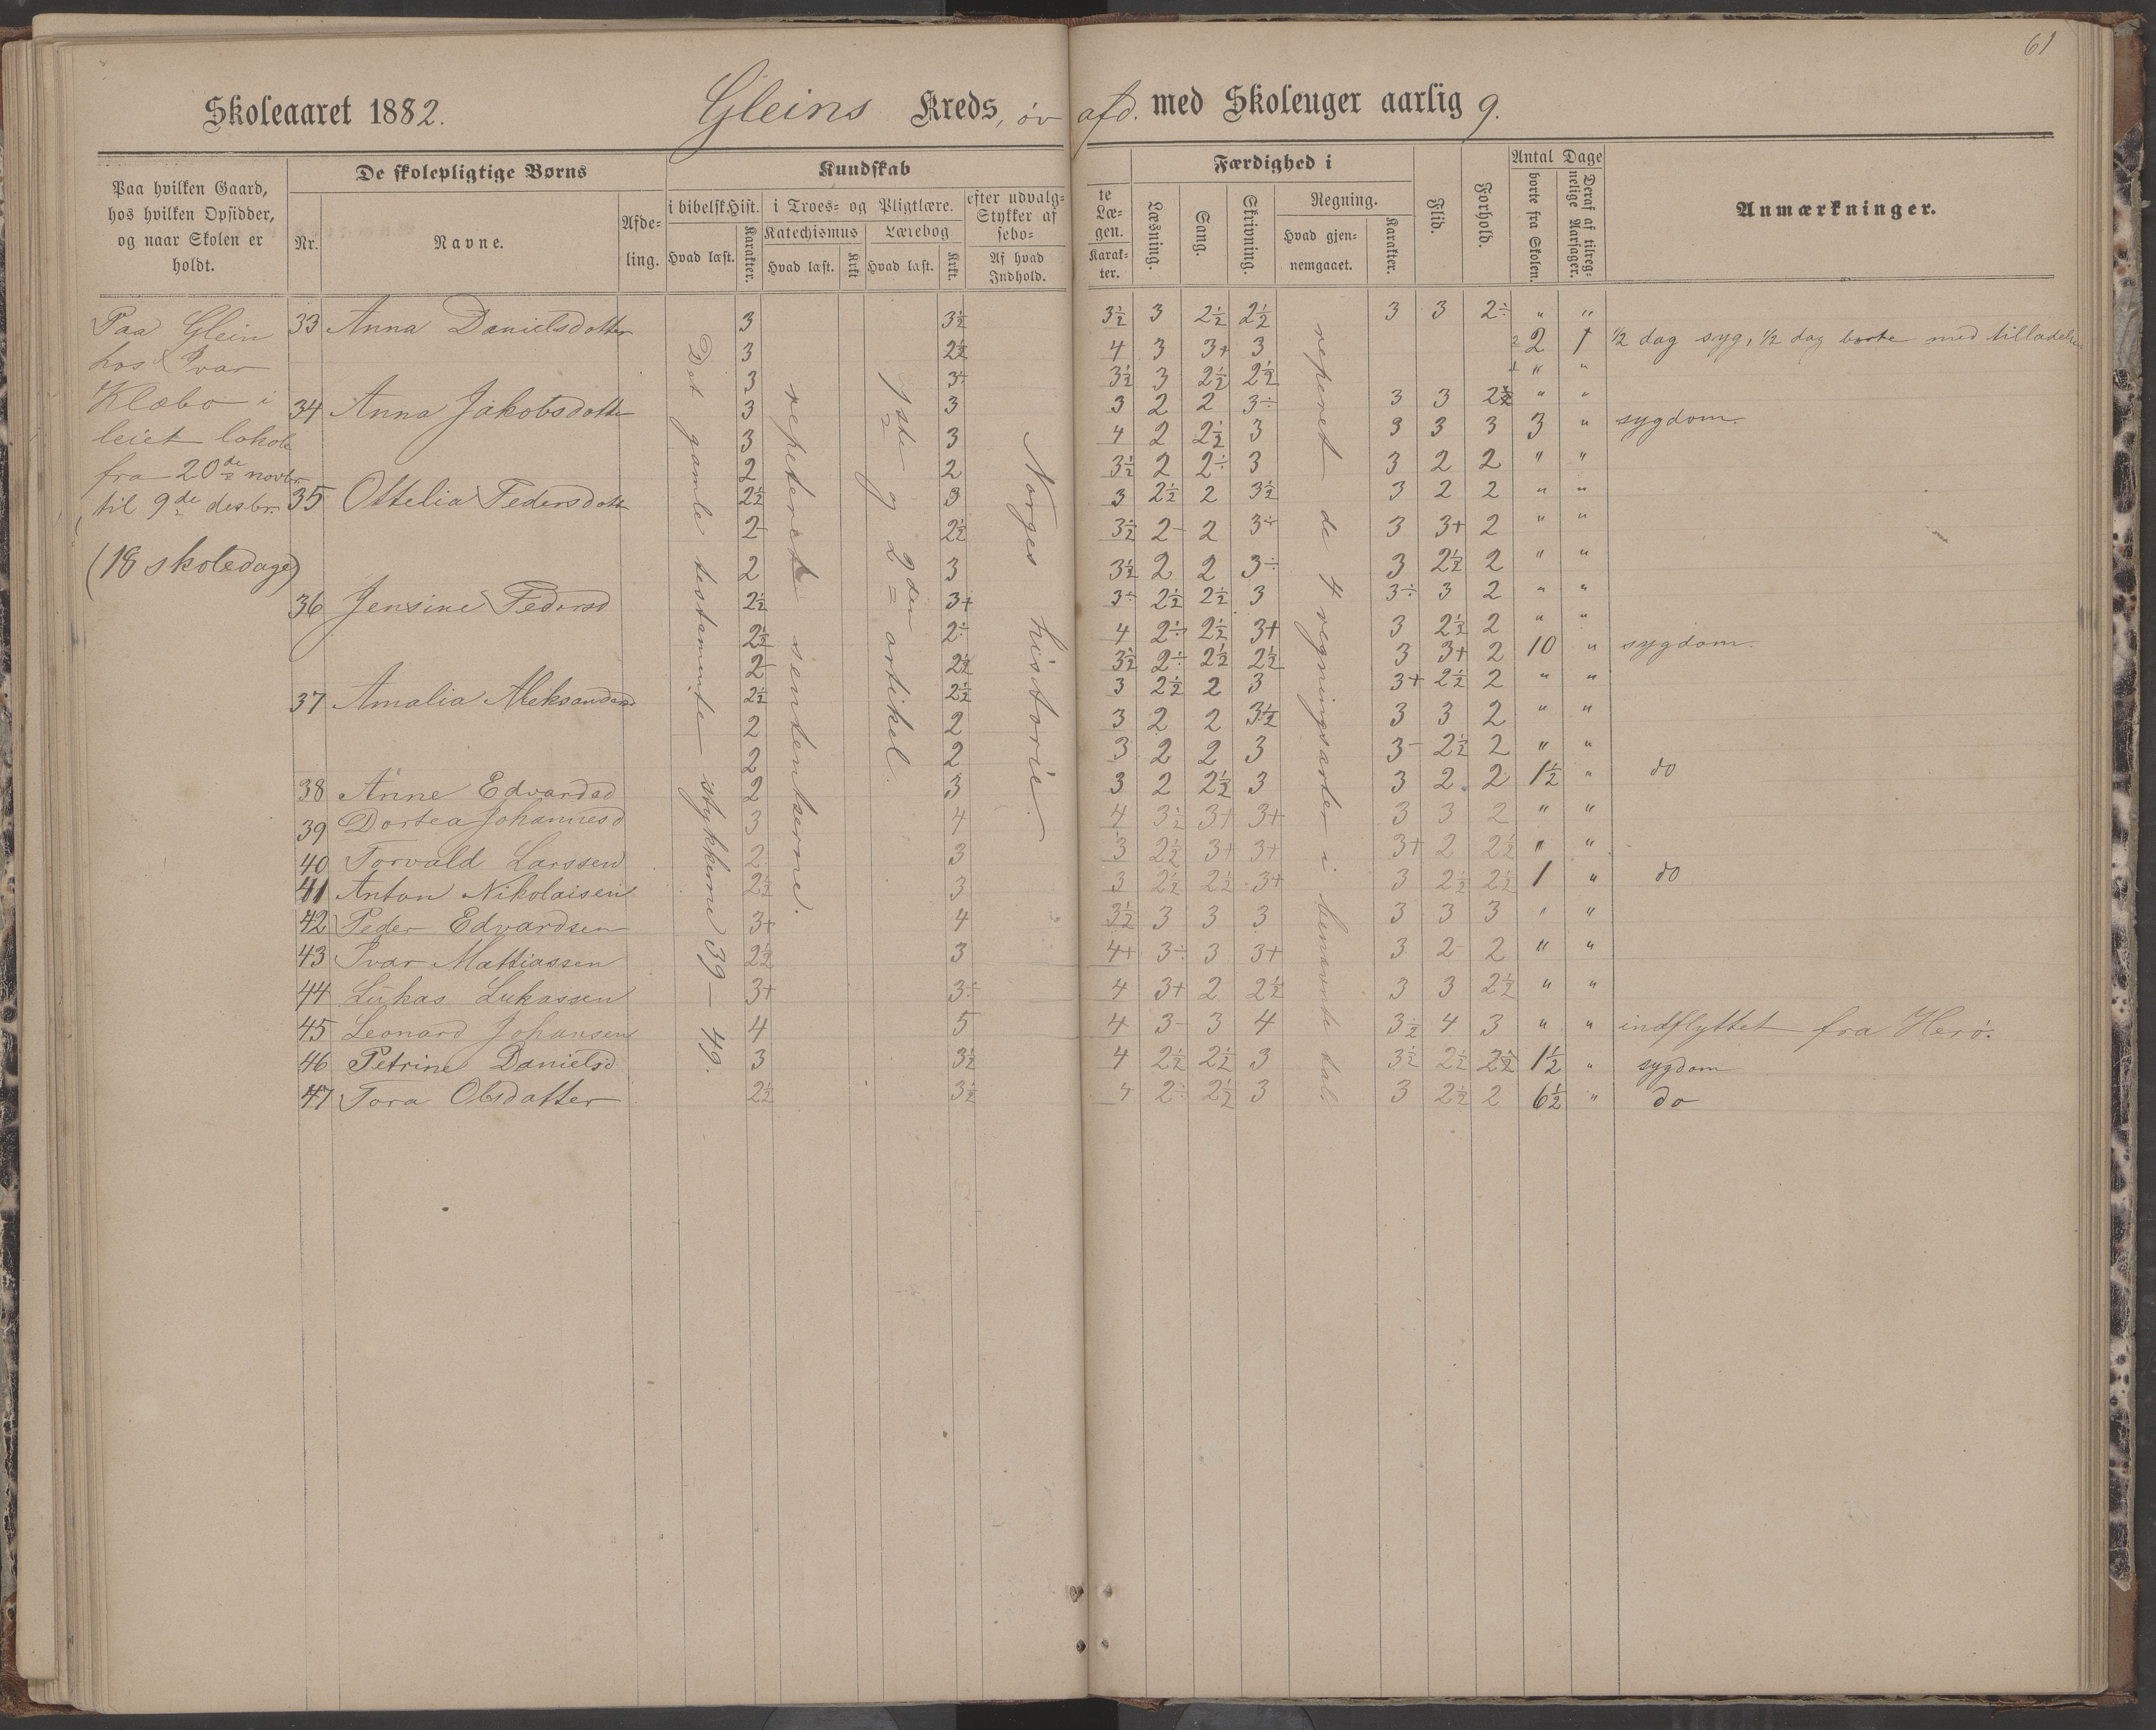 61
Skoleaaret 1882. Gleins Kreds, öv afd. med Skoleuger aarlig 9.
Paa hvilken Gaard, hos hvilken Opsidder, og naar Skolen er holdt.
De skolepligtige Børns
Nr. Navne. Afdeling.
Kundskab
i bibelsk Hist. i Troes- og Pligtlære. efter udvalgte Stykker af Læsebogen.
Hvad læst. Karakter. Katechismus Hvad læst. Krkt Lærebog Hvad læst. Krkt. Af hvad Indhold. Karakter.
Færdighed i
Læsning. Sang. Skrivning. Regning. Hvad gjennemgaaet. Karakter.
Flid. Forhold.
Antal Dage borte fra Skolen. Deraf af tilregnelige Aarsager.
Anmærkninger.
Paa Glein
hos Ivar
Klæbo i
leiet lokale
fra 20de novbr.
til 9de desbr.
(18 skoledage)
Det gamle testamente stykkerne 39 – 49.
repeteret sentenserne.
1ste og 2den artikel.
Norges historie.
reperet de 4 regningsarter i benævnte tal
33 Anna Danielsdotter 3 3½ 3½ 3 2½ 2½ 3 3 2÷ " "
3 2½ 4 3 3+ 3 2 1 ½ dag syg, ½ dag borte med tilladelse
3 3+ 3½ 3 2½ 2½ " "
34 Anna Jakobsdotter 3 3 3 2 2 3÷ 3 3 2½ " "
3 3 4 2 2½ 3 3 3 3 3 " sygdom.
2 2 3½ 2 2÷ 3 3 2 2 " "
35 Ottelia Pedersdott 2½ 3 3 2½ 2 3½ 3 2 2 " "
2 2½ 3½ 2- 2 3÷ 3 3+ 2 " "
2 3 3½ 2 2 3÷ 3 2½ 2 " "
36 Jensine Pedersd 2½ 3+ 3÷ 2½ 2½ 3 3÷ 3 2 " "
2½ 2÷ 4 2÷ 2½ 3+ 3 2½ 2 " "
2 2½ 3½ 2÷ 2½ 2½ 3 3+ 2 10 " sygdom.
37 Amalia Aleksandersd 2½ 2½ 3 2½ 2 3 3+ 2½ 2 " "
2 2 3 2 2 3½ 3 3 2 " "
2 2 3 2 2 3 3- 2½ 2 " "
38 Anne Edvardsd 2 3 3 2 2½ 3 3 2 2 1½ " do
39 Dortea Johannesd 3 4 4 3½ 3+ 3+ 3 3 2 " "
40 Torvald Larssen 2 3 3 2½ 3+ 3+ 3+ 2 2½ " "
41 Anton Nikolaisen 2½ 3 3 2½ 2½ 3+ 3 2½ 2½ 1 " do
42 Peder Edvardsen 3+ 4 3½ 3 3 3 3 3 3 " "
43 Ivar Mattiassen 2½ 3 4+ 3÷ 3 3+ 3 2 2 " "
44 Lukas Lukassen 3+ 3÷ 4 3+ 2 2½ 3 3 2½ " "
45 Leonard Johansen 4 5 4 3- 3 4 3½ 4 3 " " indflyttet fra Herö.
46 Petrine Danielsd 3 3½ 4 2½ 2½ 3 3½ 2½ 2½ 1½ " sygdom
47 Tora Olsdatter 2½ 3½ 4 2÷ 2½ 3 3 2½ 2 6½ " do